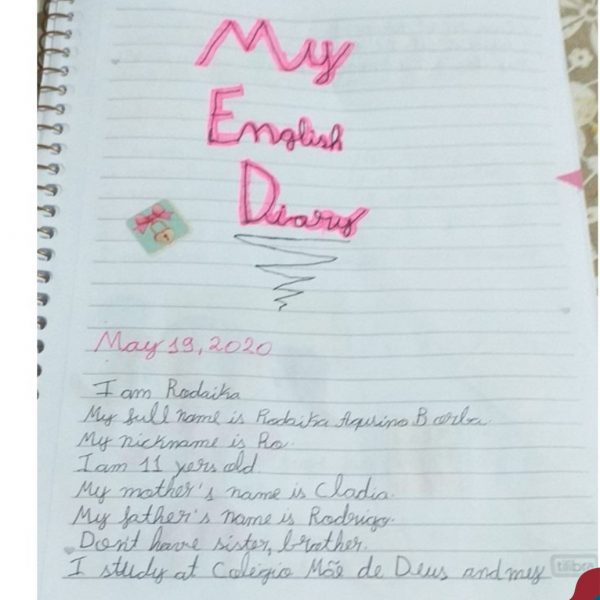 My
English
Diary
May 19, 2020
I am Rodaika
My full name is Rodaika Aquino Barba.
My nickname is Ro.
I am 11 yers old
My mother's name is Cladia.
My father's name is Rodrigo.
Don't have sister, brother.
I study at Colégio Mãe de Deus and my
tilibra